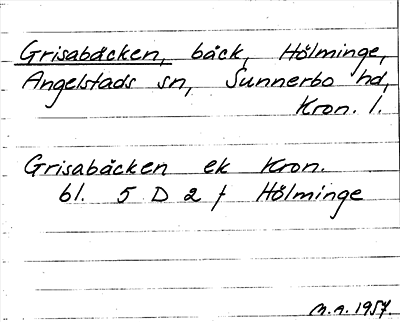 Grisabäcken, bäck, Hölminge,
Angelstads sn, Sunnerbo hd,
Kron. l.
Grisabäcken ek Kron.
bl. 5 D 2 f Hölminge
M.A. 1957.